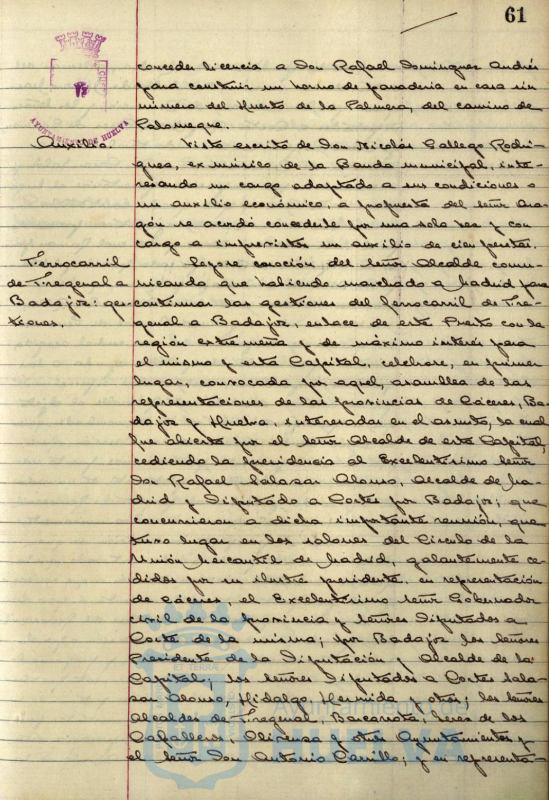 61
conceder licencia a Don Rafael Dominguez Andrés
para construir un horno de panaderia en casa sin
número del Huerto de la Palmera, del camino de
Palomeque.
Auxilio.
Visto escrito de Don Nicolás Gallego Rodri-
guez, ex músico de la Banda municipal, inte-
resando un cargo adaptado a sus condiciones o
un auxilio económico, a propuesta del Señor Ara-
gón se acordó concederle por una sola vez y con
cargo a imprevistos un auxilio de cien pesetas.
Ferrocarril
de Fregenal a
Badajoz: ges-
tiones.
Leyose moción del Señor Alcalde comu-
nicando que habiendo marchado a Madrid para
continuar las gestiones del ferrocarril de Fre-
genal a Badajoz, enlace de este Puerto con la
región extremeña y de máximo interés para
el mismo y esta Capital, celebrose, en primer
lugar, convocada por aquel, asamblea de las
representaciones de las provincias de Cáceres, Ba-
dajoz y Huelva, interesadas en el asunto, la cual
fue abierta por el Señor Alcalde de esta Capital,
cediendo la presidencia al Excelentísimo Señor
Don Rafael Salazar Alonso, Alcalde de Ma-
drid y Diputado a Cortes por Badajoz; que
concurrieron a dicha importante reunión, que
tuvo lugar en los salones del Círculo de la
Unión Mercantil de Madrid, galantemente ce-
didos por su ilustre presidente, en representación
de Cáceres, el Excelentísimo Señor Gobernador
civil de la provincia y Señores Diputados a
Cortes de la misma; por Badajoz los Señores
Presidente de la Diputación y Alcalde de la
Capital; los Señores Diputados a Cortes Sala-
zar Alonso, Hidalgo, Hermida y otros; los Señores
Alcaldes de Fregenal, Barcarrota, Jerez de los
Caballeros, Olivenza y otros Ayuntamientos y
el Señor Don Antonio Carrillo; y en representa-
Ayuntamiento de
HUELVA